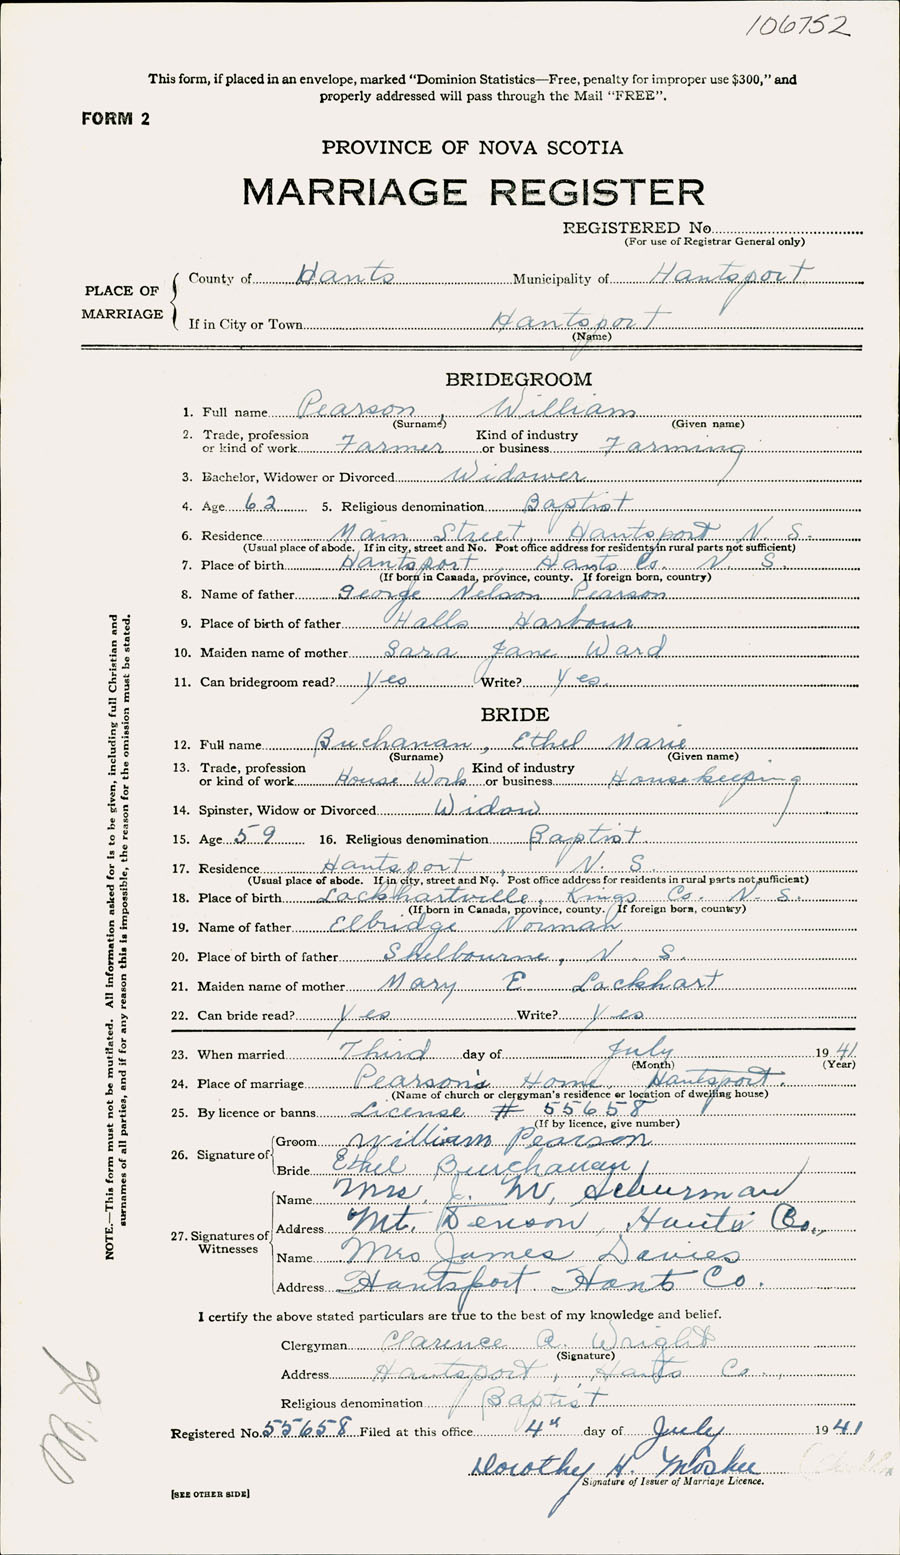 106752
This form, if placed in an envelope, marked "Dominion Statistics—Free, penalty for improper use $300," and
properly addressed will pass through the Mail "FREE".
FORM 2
PROVINCE OF NOVA SCOTIA
MARRIAGE REGISTER
REGISTERED No.
(For use of Registrar General only)
PLACE OF MARRIAGE
County of Hants Municipality of Hantsport
If in City or Town Hantsport
(Name)
BRIDEGROOM
1. Full name Pearson, William
(Surname) (Given name)
2. Trade, profession or kind of work Farmer Kind of industry or business Farming
3. Bachelor, Widower or Divorced Widower
4. Age 62 5. Religious denomination Baptist
6. Residence Main Street, Hantsport N. S.
(Usual place of abode. If in city, street and No. Post office address for residents in rural parts not sufficient)
7. Place of birth Hantsport, Hants Co. N. S.
(If born in Canada, province, county. If foreign born, country)
8. Name of father George Nelson Pearson
9. Place of birth of father Halls Harbour
10. Maiden name of mother Sara Jane Ward
11. Can bridegroom read? Yes Write? Yes.
BRIDE
12. Full name Buchanan, Ethel Marie
(Surname) (Given name)
13. Trade, profession or kind of work House Work Kind of industry or business Housekeeping
14. Spinster, Widow or Divorced Widow
15. Age 59 16. Religious denomination Baptist.
17. Residence Hantsport, N. S.
(Usual place of abode. If in city, street and No. Post office address for residents in rural parts not sufficient)
18. Place of birth Lockhartville, Kings Co. N. S.
(If born in Canada, province, county. If foreign born, country)
19. Name of father Elbridge Norman
20. Place of birth of father Shelbourne, N. S.
21. Maiden name of mother Mary E. Lockhart
22. Can bride read? Yes Write? Yes
23. When married Third day of July 1941
(Month) (Year)
24. Place of marriage Pearson's Home, Hantsport.
(Name of church or clergyman's residence or location of dwelling house)
25. By licence or banns License # 55658
(If by licence, give number)
26. Signature of
Groom William Pearson
Bride Ethel Buchanan
27. Signatures of Witnesses
Name Mrs. J. W. Schurman
Address Mt. Denson, Hants Co.,
Name Mrs James Davies
Address Hantsport Hants Co.
I certify the above stated particulars are true to the best of my knowledge and belief.
Clergyman Clarence A. Wright
(Signature)
Address Hantsport, Hants Co.,
Religious denomination Baptist
Registered No. 55658 Filed at this office 4th day of July 1941
Dorothy H.
Signature of Issuer of Marriage Licence.
[SEE OTHER SIDE]
NOTE.—This form must not be mutilated. All information asked for is to be given, including full Christian and
surnames of all parties, and if for any reason this is impossible, the reason for the omission must be stated.